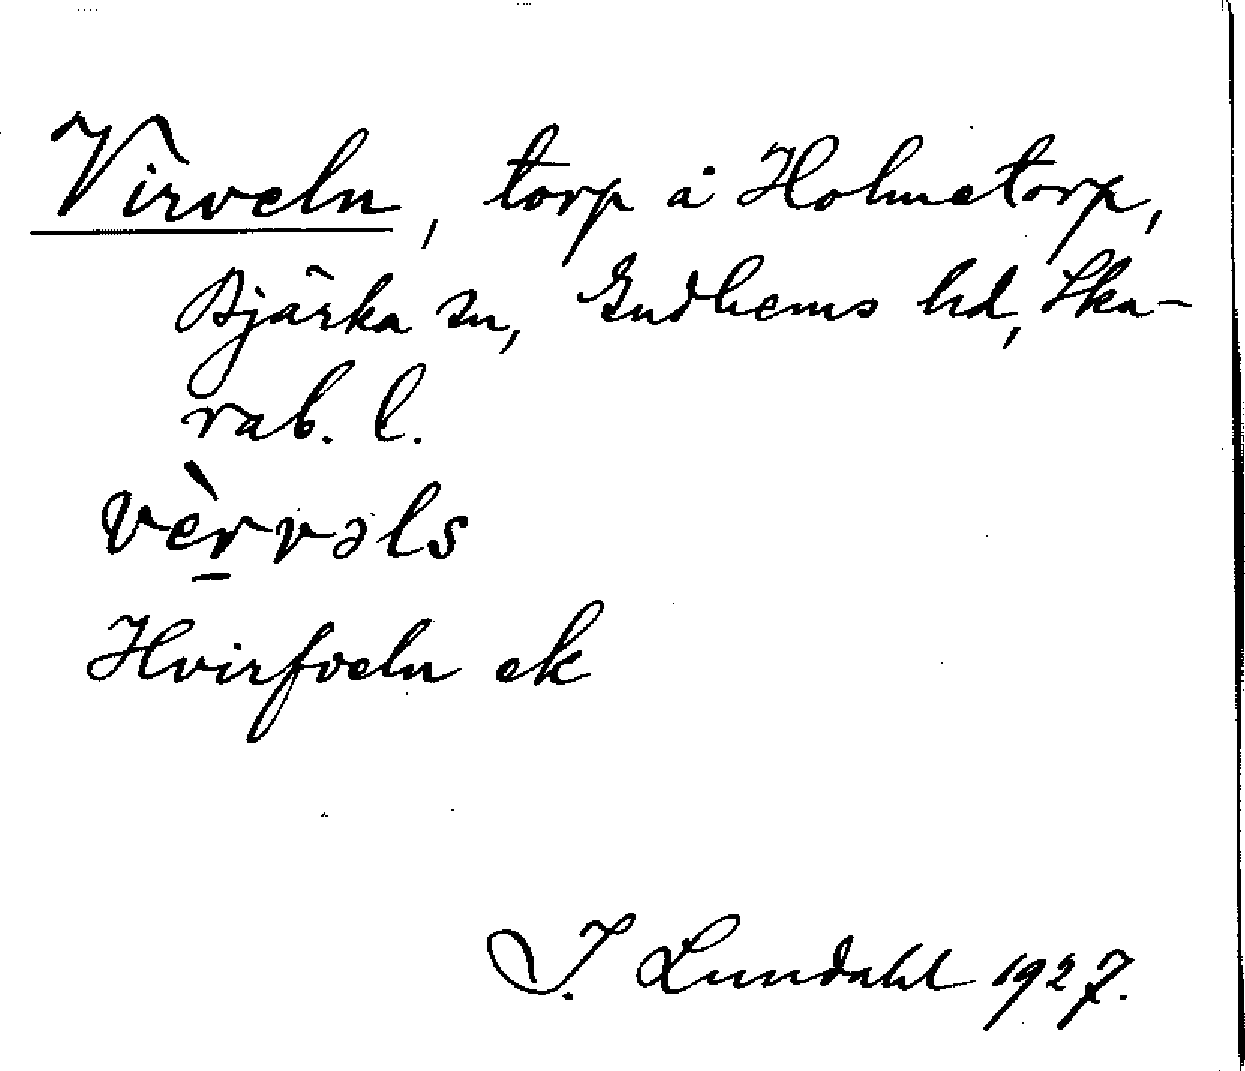 Virveln, torp å Holmetorp,
Bjärka sn, Gudhems hd, Ska-
rab. l.
vè̱rvəls
Hvirfveln ek
I. Lundahl 1927.